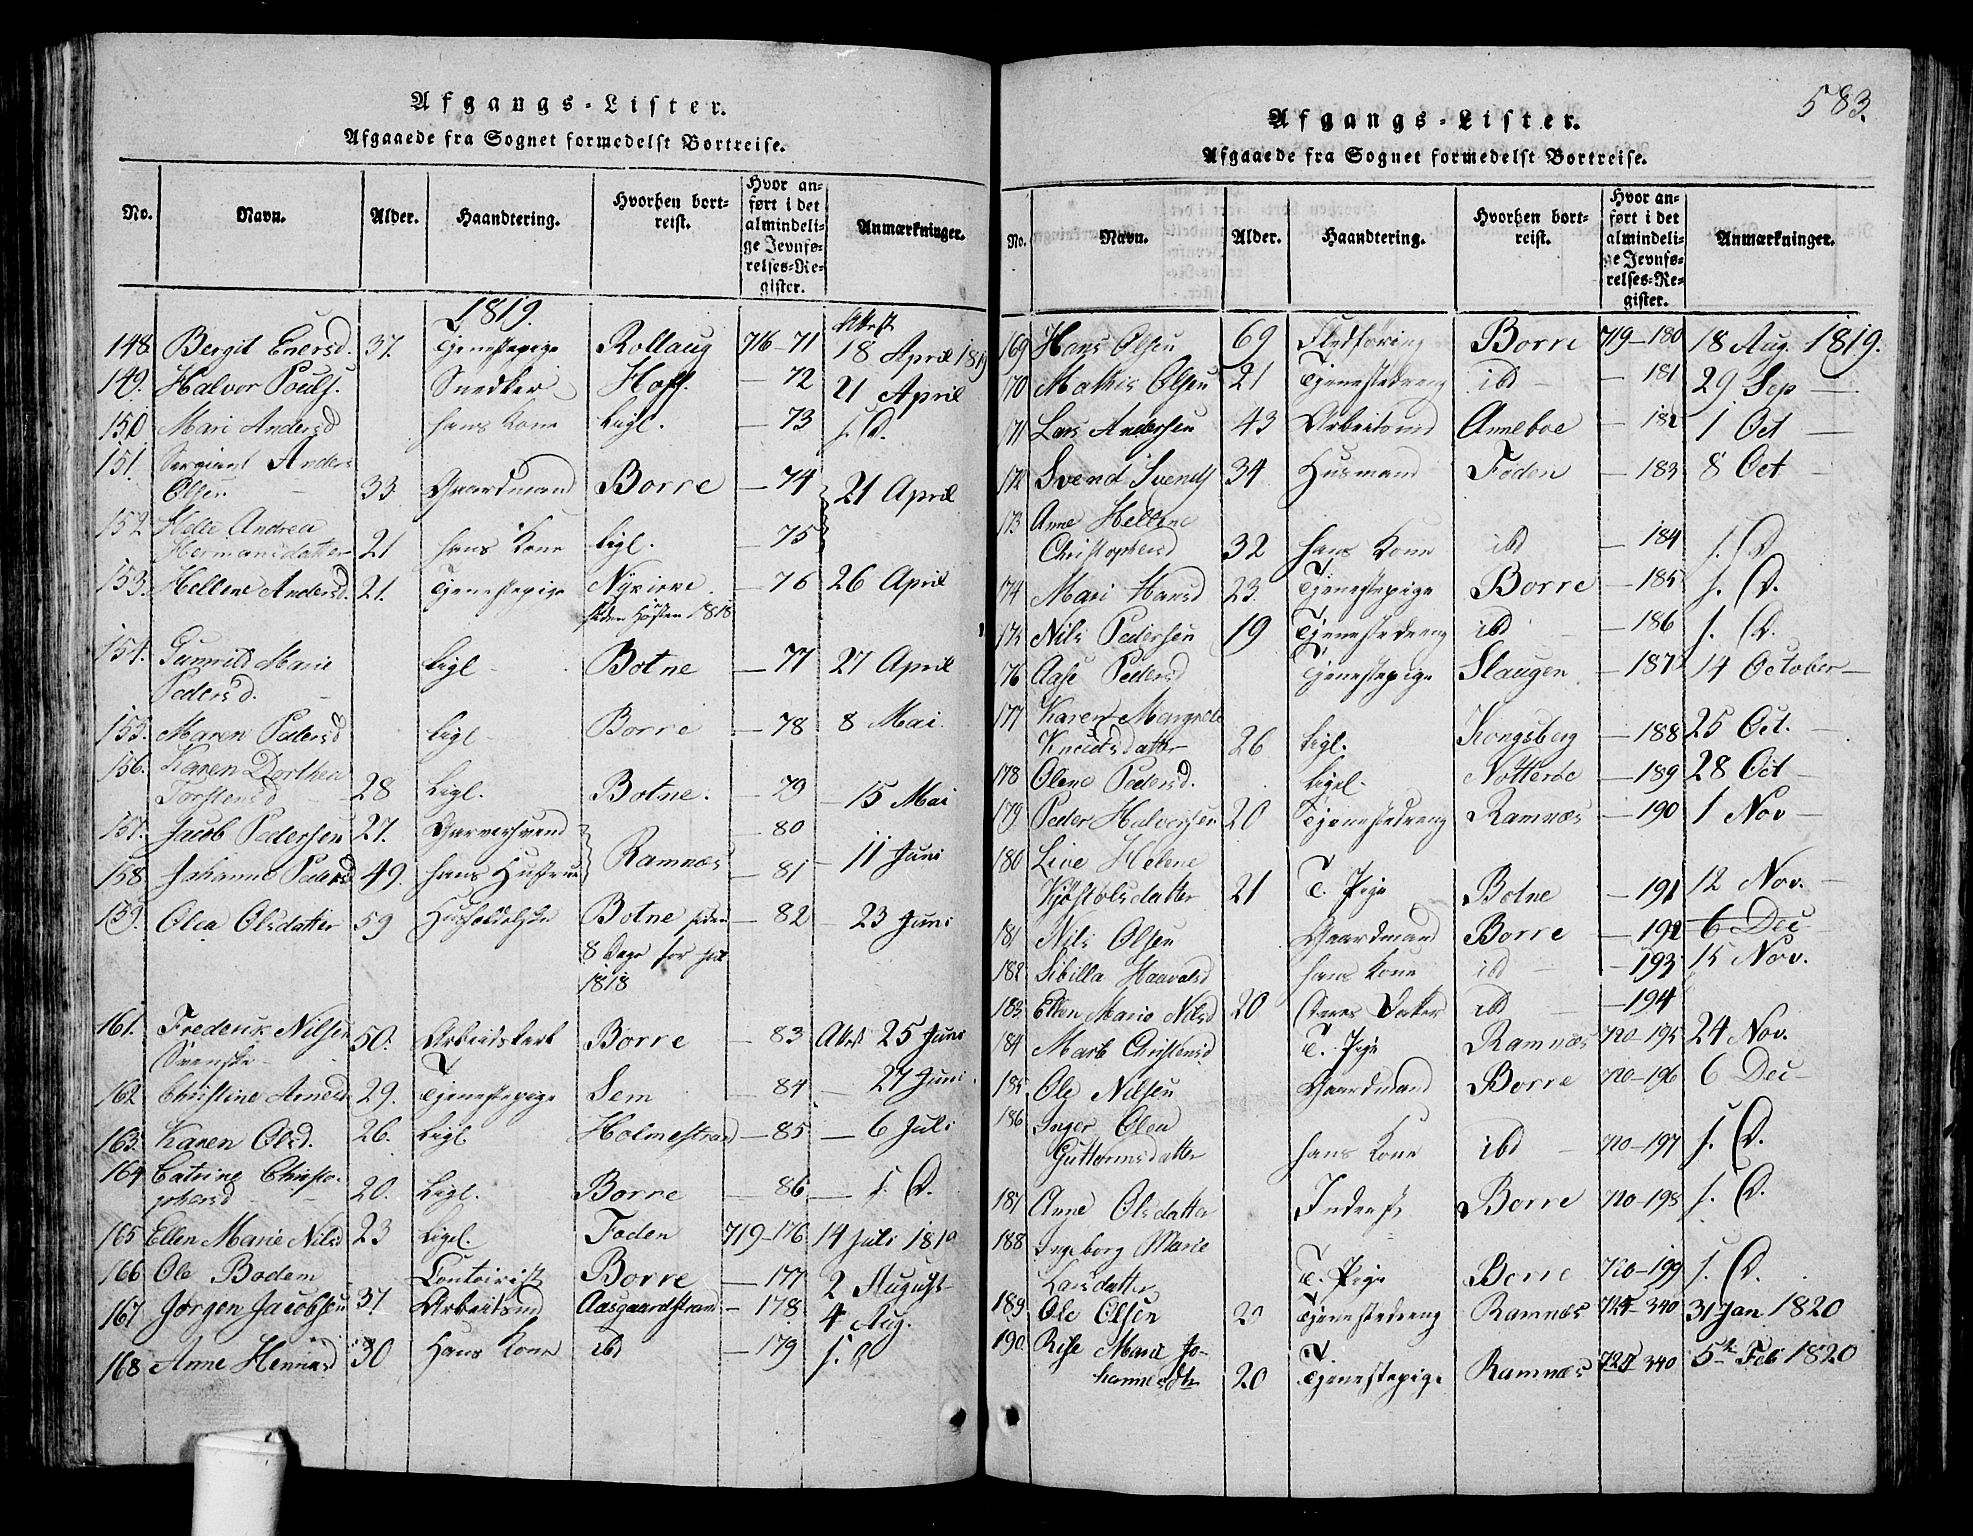 Afgangs-Lister.
Afgaaede fra Sognet formedelst Bortreise.
No. Navn. Alder. Haandtering. Hvorhen bortreist. Hvor anført i det almindelige Jevnførelses-Register. Anmærkninger.
1819.
148. Bergit Enersd. 37. Tjenestepige Rollaug 716-71 Attest 18 April 1819
149. Halvor Pouls. Snedker Hoff. - 72 21 April
150 Mari Andersd hans Kone ligl. - 73 s. D.
151. Sergiant Anders
Olsen 33 Gaardmand Borre - 74 21 April
152 Helle Andrea
Hermansdatter 21 hans Kone ligl. - 75
153. Hellene Andersd. 21. Tjenestepige Nykirke - 76 26 April
siden Høsten 1818
154. Gunnild Marie
Pedersd. ligl - Botne - 77 27 April
155. Maren Pedersd ligl - Borre - 78 8 Mai
156. Karen Dorthea
Torstensd 28 Ligl. Botne. - 79 - 15 Mai
157. Jacob Pedersen 27. Garversvend Ramnæs - 80
158. Johanne Pedersd 49. hans Hustrue - 81 - 11 Juni
159. Olea Olsdatter 59 Botne siden - 82 - 23 Juni
8 Dage før Jul
1818
161. Frederik Nilsen
Svenske - 50. Arbeidskarl Borre - 83 Attest 25 Juni
162 Christine Arnesd 29. Tjenestepige Sem - 84 - 27 Juni.
163. Karen Olsd. 26. Ligl Holmestrand - 85 - 6 Juli
164 Catrine Christo-
phersd 20. Ligl. Borre - 86 - s. D.
165 Ellen Marie Nilsd 23 Ligel. Foden 719-176 14 Juli 1819
166 Ole Bodem Contoirist Borre - 177 2 August
167 Jørgen Jacobsen 37 Arbeitsmd Aasgaardstrand - 178 4 Aug.
168 Anne Hennisd 30 Hans Kone ibd - 179 s. D
583.
Afgangs-Lister.
Afgaaede fra Sognet formedelst Bortreise.
No. Navn. Alder. Haandtering. Hvorhen bortreist. Hvor anført i det almindelige Jevnførelses-Register. Anmærkninger.
169 Hans Olsen 69 Fledføring Borre 719-180 18 Aug. 1819.
170 Mathis Olsen 21 Tjenestedreng ibd - - 181 29 Sep -
171 Lars Andersen 43 Arbeitsmd Anneboe - 182 1 Oct -
172 Svend Svends 34 Husmand Foden - 183 8 Oct -
173 Anne Hellene
Christophersd 32 hans Kone ibd - 184 s. D.
174 Mari Hansd 23. Tjenestepige Borre - 185 s. D.
175 Nils Pedersen 19 Tjenestedreng ibd - - 186 s. D.
176 Aase Pedersd Tjenestepige Slaugen - 187 14 October -
177 Karen Margrete
Knudsdatter 26 ligl. Kongsberg - 188 25 Oct. -
178 Olene Pedersd. Ligel. Nøtterøe - 189 28 Oct -
179 Peder Halvorsen 20 Tjenestedreng Ramnæs - 190 1 Nov -
180 Live Helene
Kjøstolsdatter 21 T. Pige Botne - 191 12 Nov. -
181 Nils Olsen Gaardmand Borre - 192 6 Dec
182 Sibilla Haavalsd hans Kone ibd - - 193 15 Nov.
183 Ellen Marie Nilsd 20 ibd - - 194
184 Marte Christensd T. Pige Ramnæs 720-195 24 Nov.
185 Ole Nilsen Gaardmand Borre 720-196 6 Dec -
186 Inger Olea
Guttormsdatter hans Kone ibd - 720-197 s. D.
187 Anne Olsdatter Inderst Borre 720-198 s. D.
188 Ingeborg Marie
Larsdatter T. Pige Borre 720-199 s. D.
189 Ole Olsen 20 Tjenestedreng Ramnæs 724-340 31 Jan 1820
190. Rise Maria Jo-
hannesdtr 20 Tjenestepige Ramnæs 724 340 5te Feb 1820